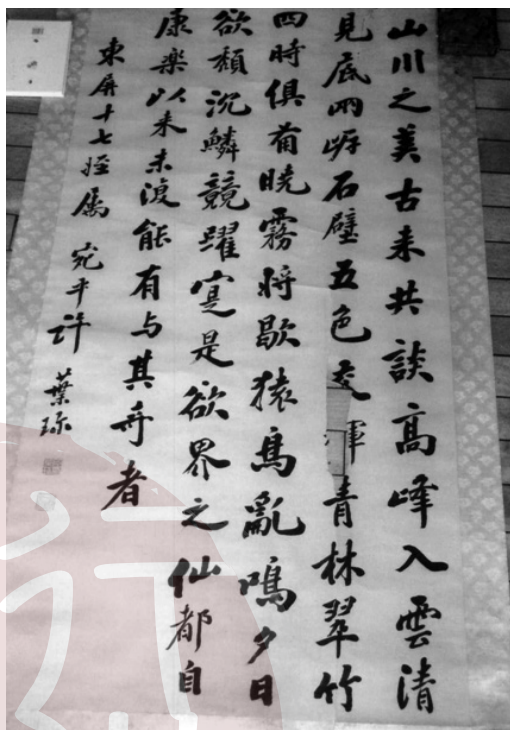 山川之美古来共談高峰入雲清
見底兩岸石壁五色交煇青林翠竹
四時俱備曉霧將歇猿鳥亂鳴夕日
欲頹沉鱗競躍寔是欲界之仙都自
康樂以来未復能有与其奇者
東屏十七姪属 宛平許葉